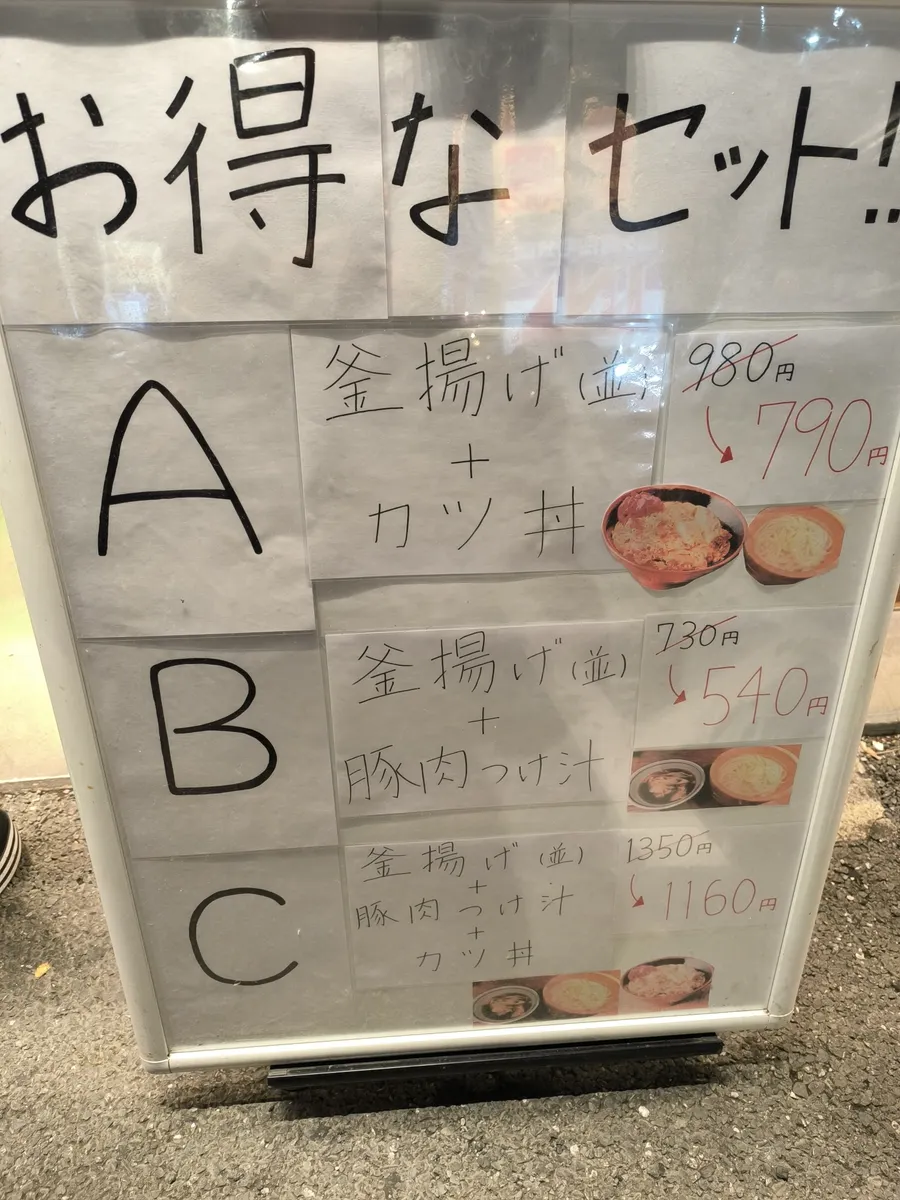 お得なセット!!
A
釜揚げ(並)
+
カツ丼
980円
790円
B
釜揚げ(並)
+
豚肉つけ汁
730円
540円
C
釜揚げ(並)
+
豚肉つけ汁
+
カツ丼
1350円
1160円